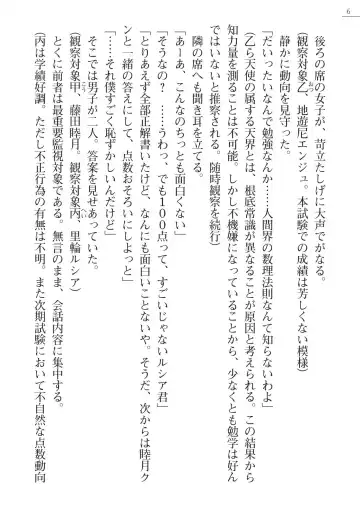 6
後ろの席の女子が、苛立たしげに大声でがなる。
（観察対象乙、地遊尼エンジュ。本試験での成績は芳しくない模様）
静かに動向を見守った。
「だいったいなんで勉強なんか……人間界の数理法則なんて知らないわよ」
（乙ら天使の属する天界とは、根底常識が異なることが原因と考えられる。この結果から
知力量を測ることは不可能。しかし不機嫌になっていることから、少なくとも勉学は好ん
ではいないと推察される。随時観察を続行）
隣の席へも聞き耳を立てる。
「あーあ、こんなのちっとも面白くない」
「そうなの？　……うわっ、でも１００点って、すごいじゃないルシア君」
「とりあえず全部正解書いたけど、なんにも面白いことないや。そうだ、次からは睦月ク
ンと一緒の答えにして、点数おそろいにしよっと」
「……それ僕すごく恥ずかしいんだけど」
そこでは男子が二人。答案を見せあっていた。
（観察対象甲、藤田睦月。観察対象丙、里輪ルシア）
とくに前者は最重要監視対象である。無言のまま、会話内容に集中する。
（丙は学績好調。ただし不正行為の有無は不明。また次期試験において不自然な点数動向